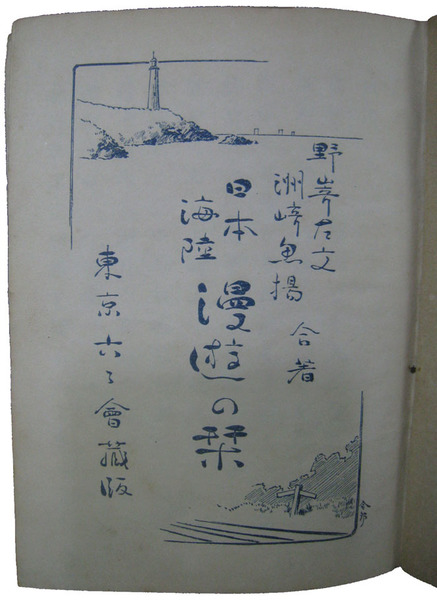 野崎左文
洲崎魚揚 合著
日本
海陸
漫遊の栞
東京六々會蔵版